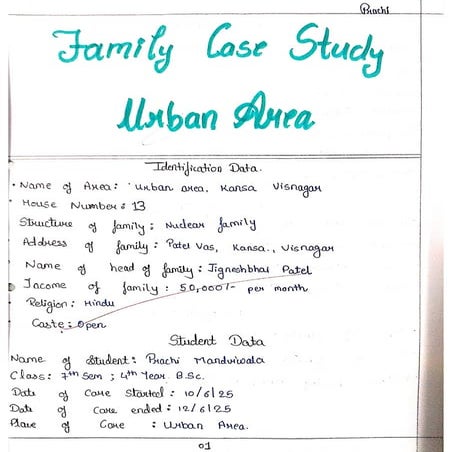 Prachi
Family Case Study
Urban Area
Identification Data.
• Name of Area: Urban area, Kansa Visnagar
• House Number: 13
Structure of family: Nuclear family
Address of family: Patel Vas, Kansa., Visnagar
Name of head of family: Jigneshbhai Patel
Income of family: 50,000/- per month
Religion: Hindu
Caste: Open
Student Data
Name of Student: Prachi Mandviwala
Class: 7th Sem ; 4th Year B.Sc.
Date of Care Started: 10/6/25
Date of Care ended: 12/6/25
Place of Care : Urban Area.
01